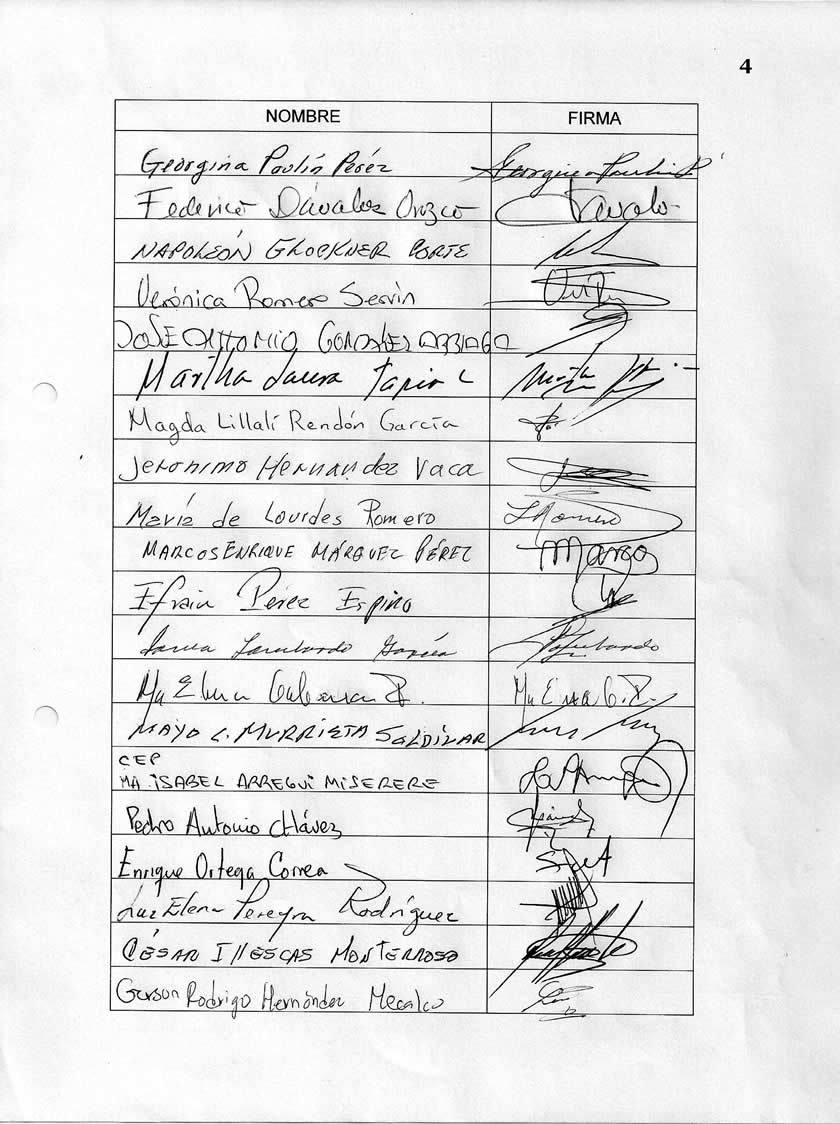 4
NOMBRE FIRMA
Georgina Paulín Peréz Georgina Paulin P
Federico Dávalos Orozco Dávalo
NAPOLEÓN GLOCKNER CORTE
Verónica Romero Servín
JOSE ANTONIO GONZALEZ
Martha Laura Tapia C
Magda Lillalí Rendón García
JERONIMO HERNANDEZ VACA
María de Lourdes Romero LRomero
MARCOS ENRIQUE MÁRQUEZ PÉREZ Marco
Efraín Pérez Espino
Lombardo García Lombardo
Ma Elena R. Ma Elena G. R.
MAYO L. MURRIETA SALDÍVAR
CEP
MA. ISABEL ARREGUI MISERERE
Pedro Antonio Chávez
Enrique Ortega Correa
Luz Elena Pereyra Rodríguez
CÉSAR IllESCAS MONTERROSO
Gerson Rodrigo Hernández Mecalco